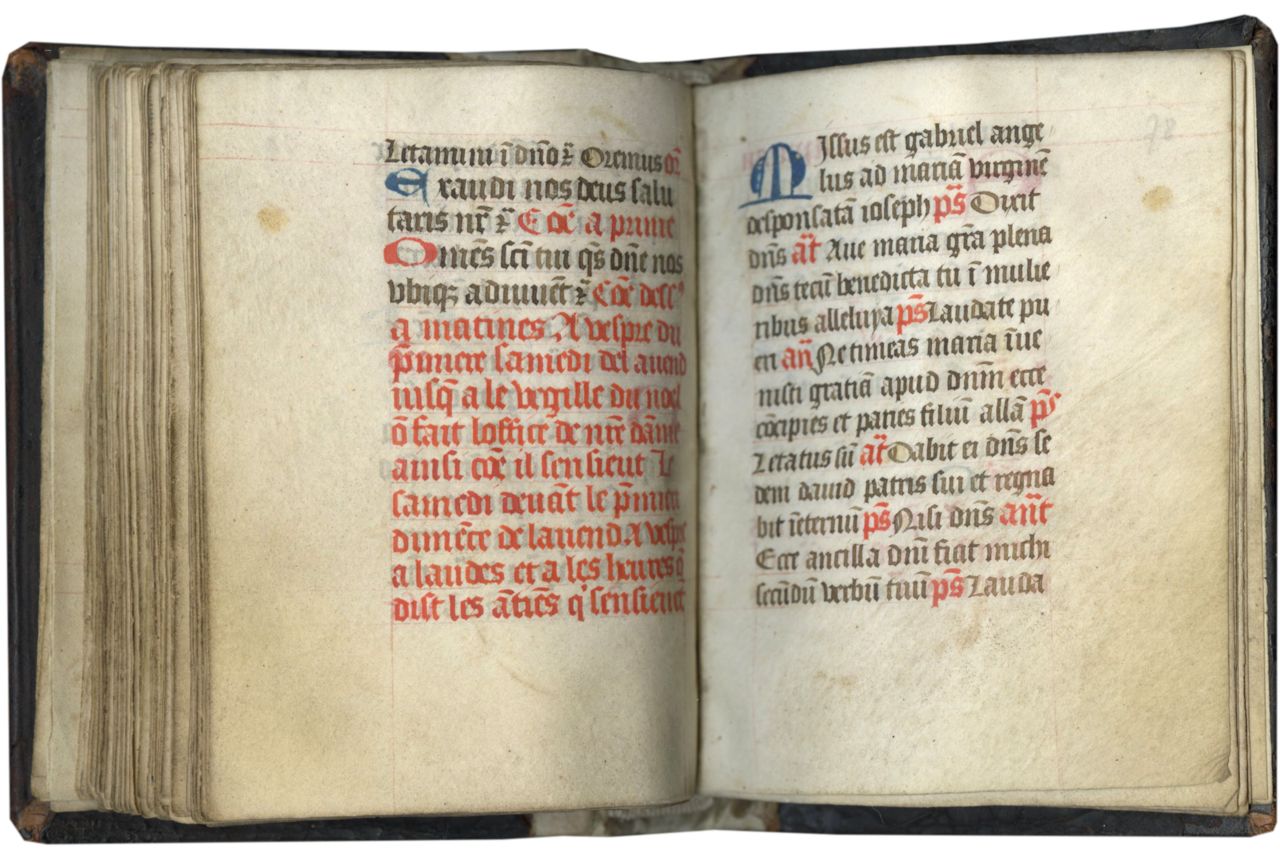 Letamini ī dn̄o ꝛ̃ Oremus or̄
Exaudi nos deus salu
taris nr̄ ꝛ̃ Et cōe a prime
Omēs scī tui qs̄ dn̄e nos
vbiqꝫ adiuuēt ꝛ̃ Cōe dess9
a matines. A vespre du
p̄miere samedi del auend
iusq̄ a le vegille du noel
ō fait loffice de nrē dāme
ainsi cōe il sensieut Le
samedi deuāt le p̄mier
dimēce de lauend A vespre
a laudes et a les heures q̄
dist les ātiēs q' sensieuēt
Missus est gabriel ange
lus ad mariā virginē
desponsatā ioseph ps̄ Dixit
dn̄s āt Aue maria gr̄a plena
dn̄s tecū benedicta tu ī mulie
ribus alleluya ps̄ Laudate pu
eri an̄ Ne timeas maria īue
nisti gratiā apud dnm̄ ecce
cōcipies et paries filiū allā ps̄
Letatus sū āt Dabit ei dn̄s se
dem dauid patris sui et regna
bit īeternū ps̄ Nisi dn̄s an̄t
Ecce ancilla dnī fiat michi
secūdū verbū tuū ps̄ Lauda
78